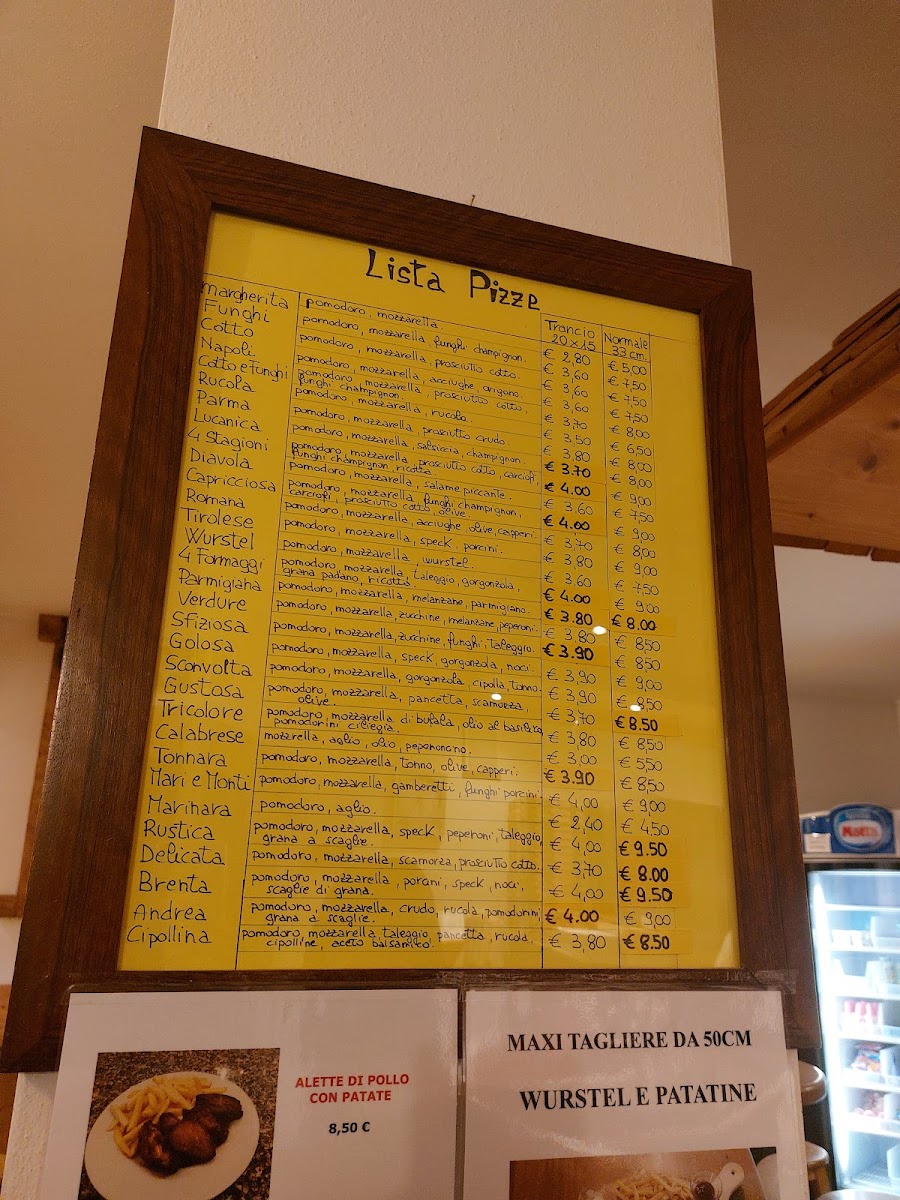 Lista Pizze
Trancio 20x15 Normale 33 cm.
Margherita pomodoro, mozzarella € 2,80 € 5,00
Funghi pomodoro, mozzarella, funghi champignon. € 3,60 € 7,50
Cotto pomodoro, mozzarella, prosciutto cotto. € 3,60 € 7,50
Napoli pomodoro, mozzarella, acciughe, origano. € 3,60 € 7,50
Cotto e funghi pomodoro, mozzarella, prosciutto cotto, € 3,70 € 8,00
funghi champignon.
Rucola pomodoro, mozzarella, rucola. € 3,50 € 6,50
Parma pomodoro, mozzarella, prosciutto crudo. € 3,80 € 8,00
Lucanica pomodoro, mozzarella, salsiccia, champignon. € 3.70 € 8,00
4 Stagioni pomodoro, mozzarella, prosciutto cotto, carciofi, € 4.00 € 9,00
funghi champignon, ricotta.
Diavola pomodoro, mozzarella, salame piccante. € 3,60 € 7,50
Capricciosa pomodoro, mozzarella, funghi champignon, € 4.00 € 9,00
carciofi, prosciutto cotto, olive.
Romana pomodoro, mozzarella, acciughe, olive, capperi. € 3,70 € 8,00
Tirolese pomodoro, mozzarella, speck, porcini. € 3,80 € 9,00
Wurstel pomodoro, mozzarella, wurstel. € 3,60 € 7,50
4 Formaggi pomodoro, mozzarella, taleggio, gorgonzola, € 4.00 € 9,00
grana padano, ricotta
Parmigiana pomodoro, mozzarella, melanzane, parmigiano. € 3.80 € 8.00
Verdure pomodoro, mozzarella, zucchine, melanzane, peperoni. € 3,80 € 8,50
Sfiziosa pomodoro, mozzarella, zucchine, funghi, taleggio. € 3.90 € 8,50
Golosa pomodoro, mozzarella, speck, gorgonzola, noci. € 3,90 € 9,00
Sconvolta pomodoro, mozzarella, gorgonzola, cipolla, tonno. € 3,90 € 8,50
Gustosa pomodoro, mozzarella, pancetta, scamorza, € 3,70 € 8.50
olive.
Tricolore pomodoro, mozzarella di bufala, olio al basilico, € 3,80 € 8,50
pomodorini ciliegia.
Calabrese mozzarella, aglio, olio, peperoncino. € 3,00 € 5,50
Tonnara pomodoro, mozzarella, tonno, olive, capperi. € 3.90 € 8,50
Mari e Monti pomodoro, mozzarella, gamberetti, funghi porcini. € 4,00 € 9,00
Marinara pomodoro, aglio. € 2,40 € 4,50
Rustica pomodoro, mozzarella, speck, peperoni, taleggio, € 4,00 € 9.50
grana a scaglie.
Delicata pomodoro, mozzarella, scamorza, prosciutto cotto. € 3,70 € 8.00
Brenta pomodoro, mozzarella, porcini, speck, noci, € 4,00 € 9.50
scaglie di grana.
Andrea pomodoro, mozzarella, crudo, rucola, pomodorini, € 4.00 € 9,00
grana a scaglie.
Cipollina pomodoro, mozzarella, taleggio, pancetta, rucola, € 3,80 € 8.50
cipolline, aceto balsamico.
ALETTE DI POLLO
CON PATATE
8,50 €
MAXI TAGLIERE DA 50CM
WURSTEL E PATATINE
Motta